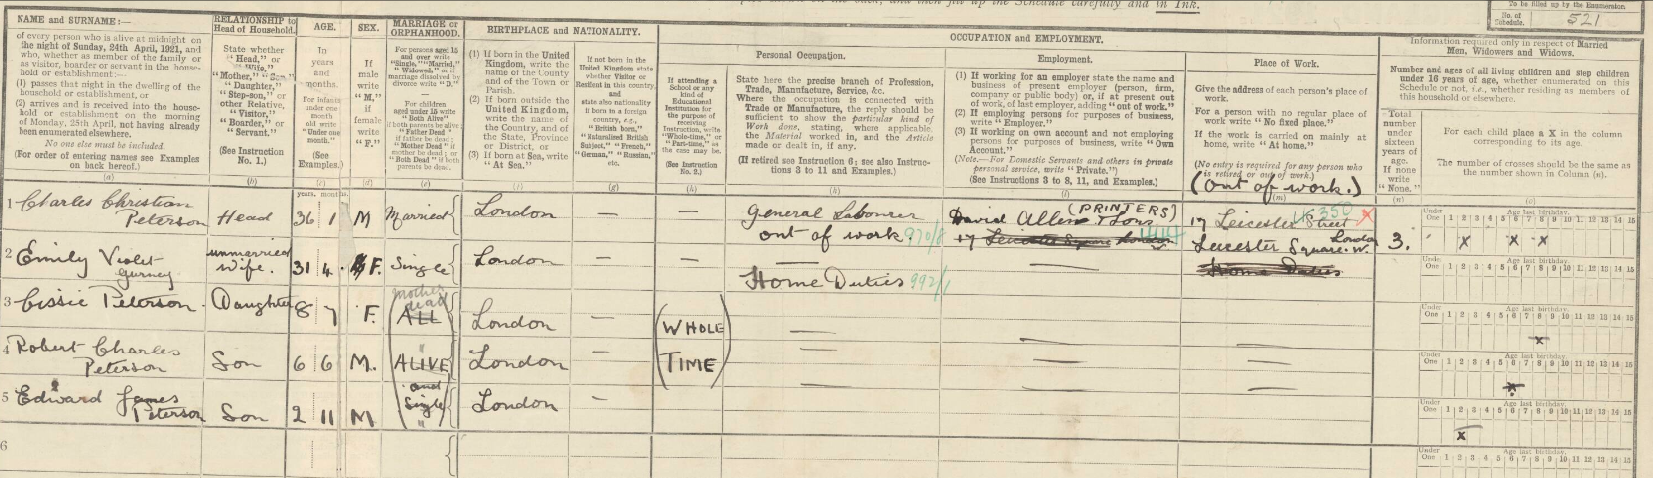 and then fill up the Schedule carefully and in Ink.
To be filled up by the Enumerator.
No. of Schedule. 521
NAME and SURNAME:—
of every person who is alive at midnight on
the night of Sunday, 24th April, 1921, and
who, whether as member of the family or
as visitor, boarder or servant in the house-
hold or establishment:—
(1) passes that night in the dwelling of the
household or establishment, or
(2) arrives and is received into the house-
hold or establishment on the morning
of Monday, 25th April, not having already
been enumerated elsewhere.
No one else must be included.
(For order of entering names see Examples
on back hereof.)
(a)
RELATIONSHIP to
Head of Household.
State whether
"Head," or
"Wife,"
"Mother," "Son,"
"Daughter,"
"Step-son," or
other Relative,
"Visitor,"
"Boarder," or
"Servant."
(See Instruction
No. 1.)
(b)
AGE.
In
years
and
months.
For infants
under one
month old
write "Under
one month."
(See
Examples.)
(c)
years. months.
SEX.
If
male
write
"M,"
if
female
write
"F."
(d)
MARRIAGE or
ORPHANHOOD.
For persons aged 15
and over write
"Single," "Married,"
"Widowed," or if
marriage dissolved by
divorce write "D."
For children
aged under 15 write
"Both Alive"
if both parents be alive;
"Father Dead"
if father be dead;
"Mother Dead" if
mother be dead; or
"Both Dead" if both
parents be dead.
(e)
BIRTHPLACE and NATIONALITY.
(1) If born in the United
Kingdom, write the
name of the County
and of the Town or
Parish.
(2) If born outside the
United Kingdom,
write the name of
the Country, and of
the State, Province
or District, or
(3) If born at Sea, write
"At Sea."
(f)
If not born in the
United Kingdom state
whether Visitor or
Resident in this country,
and
state also nationality
if born in a foreign
country, e.g.,
"British born,"
"Naturalised British
Subject," "French,"
"German," "Russian,"
etc.
(g)
OCCUPATION and EMPLOYMENT.
If attending a
School or any
kind of
Educational
Institution for
the purpose of
receiving
Instruction, write
"Whole-time," or
"Part-time," as
the case may be.
(See Instruction
No. 2.)
(h)
Personal Occupation.
State here the precise branch of Profession,
Trade, Manufacture, Service, &c.
Where the occupation is connected with
Trade or Manufacture, the reply should be
sufficient to show the particular kind of
Work done, stating, where applicable,
the Material worked in, and the Article
made or dealt in, if any.
(If retired see Instruction 6; see also Instruc-
tions 3 to 11 and Examples.)
(k)
Employment.
(1) If working for an employer state the name and
business of present employer (person, firm,
company or public body) or, if at present out
of work, of last employer, adding "out of work."
(2) If employing persons for purposes of business,
write "Employer."
(3) If working on own account and not employing
persons for purposes of business, write "Own
Account."
(Note.—For Domestic Servants and others in private
personal service, write "Private.")
(See Instructions 3 to 8, 11, and Examples.)
(l)
Place of Work.
Give the address of each person's place of
work.
For a person with no regular place of
work write "No fixed place."
If the work is carried on mainly at
home, write "At home."
(No entry is required for any person who
is retired or out of work.)
(m)
(Out of work.)
Information required only in respect of Married
Men, Widowers and Widows.
Number and ages of all living children and step children
under 16 years of age, whether enumerated on this
Schedule or not, i.e., whether residing as members of
this household or elsewhere.
Total
number
under
sixteen
years of
age.
If none
write
"None."
(n)
For each child place a X in the column
corresponding to its age.
The number of crosses should be the same as
the number shown in Column (n).
(o)
1 Charles Christian
Peterson Head 36 1 M Married London — — General Labourer
out of work. 970/8 David Allen & Sons (PRINTERS)
17 Leicester Square London 17 Leicester Street
Leicester Square. W. London 3. x x x
2 Emily Violet
Gurney unmarried
wife. 31 4 F. Single London — — —
Home Duties 992/1 — Home Duties
3 Cissie Peterson. Daughter 8 7 F. mother
dead
ALL London — (WHOLE — — — x
4 Robert Charles
Peterson Son 6 6 M. ALIVE London — TIME) — — — x
5 Edward James
Peterson Son 2 11 M and
Single London — — — — x
6
Under One Age last birthday. 1 2 3 4 5 6 7 8 9 10 11 12 13 14 15